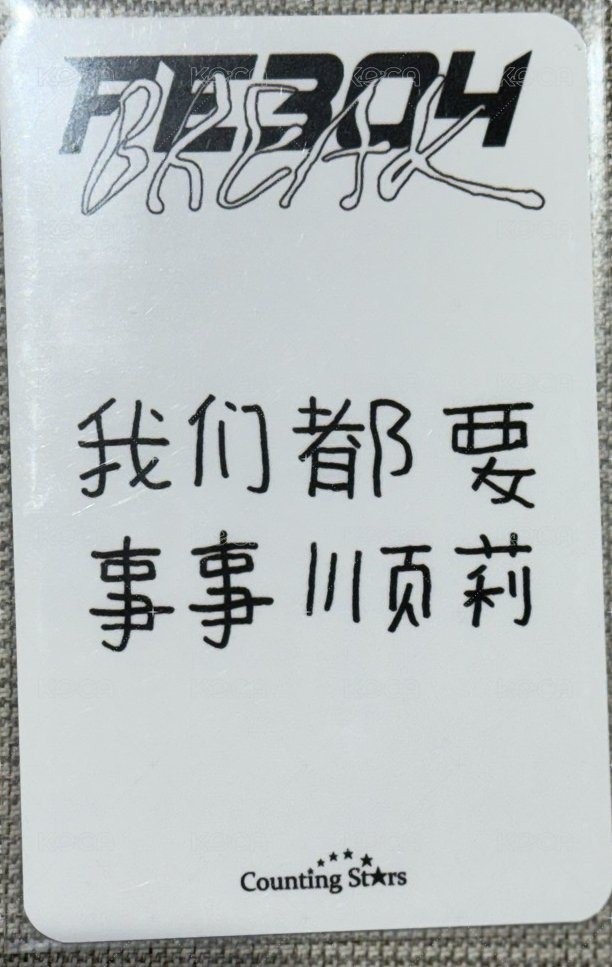 RE304
BREAK
我们都要
事事顺莉
Counting Stars